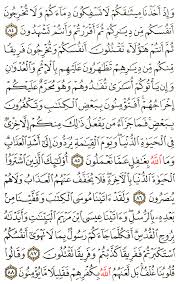 وَإِذْ أَخَذْنَا مِيثَٰقَكُمْ لَا تَسْفِكُونَ دِمَآءَكُمْ وَلَا تُخْرِجُونَ
أَنفُسَكُم مِّن دِيَٰرِكُمْ ثُمَّ أَقْرَرْتُمْ وَأَنتُمْ تَشْهَدُونَ ٨٤
ثُمَّ أَنتُمْ هَٰٓؤُلَآءِ تَقْتُلُونَ أَنفُسَكُمْ وَتُخْرِجُونَ فَرِيقًا
مِّنكُم مِّن دِيَٰرِهِمْ تَظَٰهَرُونَ عَلَيْهِم بِٱلْإِثْمِ وَٱلْعُدْوَٰنِ
وَإِن يَأْتُوكُمْ أُسَٰرَىٰ تُفَٰدُوهُمْ وَهُوَ مُحَرَّمٌ عَلَيْكُمْ
إِخْرَاجُهُمْ أَفَتُؤْمِنُونَ بِبَعْضِ ٱلْكِتَٰبِ وَتَكْفُرُونَ
بِبَعْضٍ فَمَا جَزَآءُ مَن يَفْعَلُ ذَٰلِكَ مِنكُمْ إِلَّا خِزْىٌ
فِى ٱلْحَيَوٰةِ ٱلدُّنْيَا وَيَوْمَ ٱلْقِيَٰمَةِ يُرَدُّونَ إِلَىٰٓ أَشَدِّ ٱلْعَذَابِ
وَمَا ٱللَّهُ بِغَٰفِلٍ عَمَّا تَعْمَلُونَ ٨٥ أُو۟لَٰٓئِكَ ٱلَّذِينَ ٱشْتَرَوُا۟
ٱلْحَيَوٰةَ ٱلدُّنْيَا بِٱلْءَاخِرَةِ فَلَا يُخَفَّفُ عَنْهُمُ ٱلْعَذَابُ وَلَا هُمْ
يُنصَرُونَ ٨٦ وَلَقَدْ ءَاتَيْنَا مُوسَى ٱلْكِتَٰبَ وَقَفَّيْنَا مِنۢ
بَعْدِهِۦ بِٱلرُّسُلِ وَءَاتَيْنَا عِيسَى ٱبْنَ مَرْيَمَ ٱلْبَيِّنَٰتِ وَأَيَّدْنَٰهُ
بِرُوحِ ٱلْقُدُسِ أَفَكُلَّمَا جَآءَكُمْ رَسُولٌۢ بِمَا لَا تَهْوَىٰٓ أَنفُسُكُمُ
ٱسْتَكْبَرْتُمْ فَفَرِيقًا كَذَّبْتُمْ وَفَرِيقًا تَقْتُلُونَ ٨٧ وَقَالُوا۟
قُلُوبُنَا غُلْفٌۢ بَل لَّعَنَهُمُ ٱللَّهُ بِكُفْرِهِمْ فَقَلِيلًا مَّا يُؤْمِنُونَ ٨٨